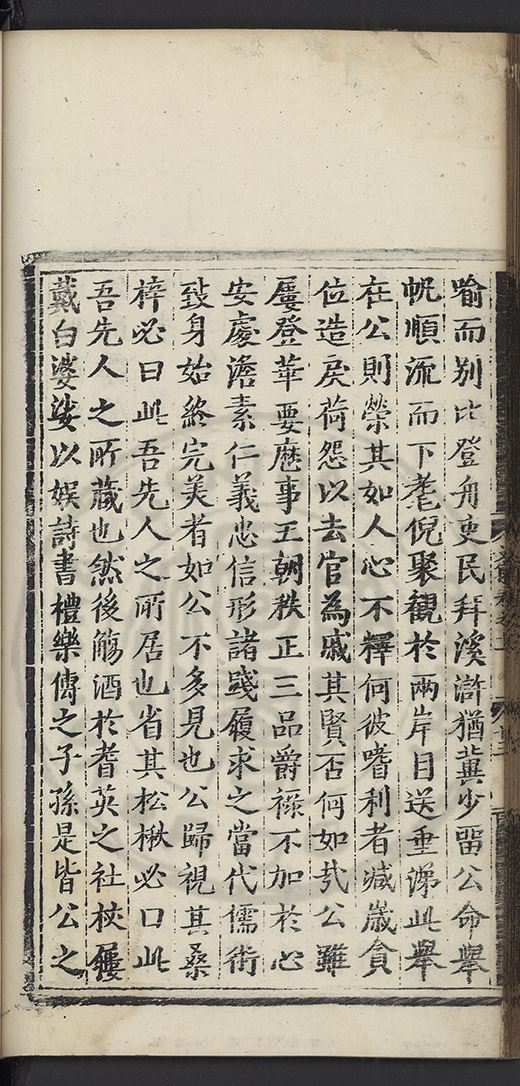 喻而别比登舟吏民拜溪滸猶冀少留公命舉
帆順流而下耄倪聚觀於兩岸目送垂涕此舉
在公則榮其如人心不釋何彼嗜利者減歲貪
位造戾荷怨以去官為戚其賢否何如㢤公雖
屢登華要歷事王朝秩正三品爵祿不加於心
安處澹素仁義忠信形諸踐履求之當代儒術
致身始終完美者如公不多見也公歸視其桑
梓必曰此吾先人之所居也省其松楸必曰此
吾先人之所藏也然後觴酒於耆英之社杖屨
戴白婆娑以娛詩書禮樂傳之子孫是皆公之